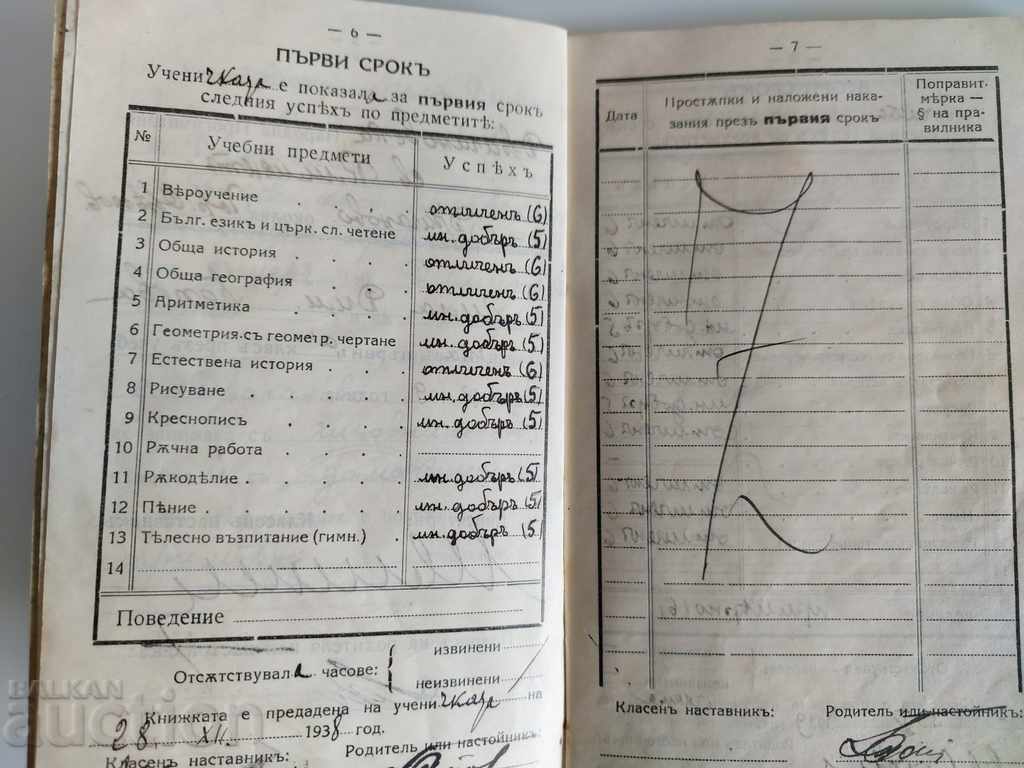 — 6 —
ПЪРВИ СРОКЪ
Учени чката е показала за първия срокъ
следния успѣхъ по предметитѣ:
№ Учебни предмети Успѣхъ
1 Вѣроучение . . . . отличенъ (6)
2 Бълг. езикъ и църк. сл. четене мн. добъръ (5)
3 Обща история . . . . отличенъ (6)
4 Обща география . . . . отличенъ (6)
5 Аритметика . . . . мн. добъръ (5)
6 Геометрия съ геометр. чертане мн. добъръ (5)
7 Естествена история . . . отличенъ (6)
8 Рисуване . . . . мн. добъръ (5)
9 Креснописъ . . . . мн. добъръ (5)
10 Рѫчна работа . . . .
11 Рѫкоделие . . . . мн. добъръ (5)
12 Пѣние . . . . мн. добъръ (5)
13 Тѣлесно възпитание (гимн.) . мн. добъръ (5)
14
Поведение
Отсѫтствувала часове: извинени
неизвинени
Книжката е предадена на учени чката на
28. XII. 1938 год.
Класенъ наставникъ: Родитель или настойникъ:
— 7 —
Дата Простѫпки и наложени нака- Поправит.
зания презъ първия срокъ мѣрка —
§ на пра-
вилника
Класенъ наставникъ: Родитель или настойникъ:
БАЛКАН
auction